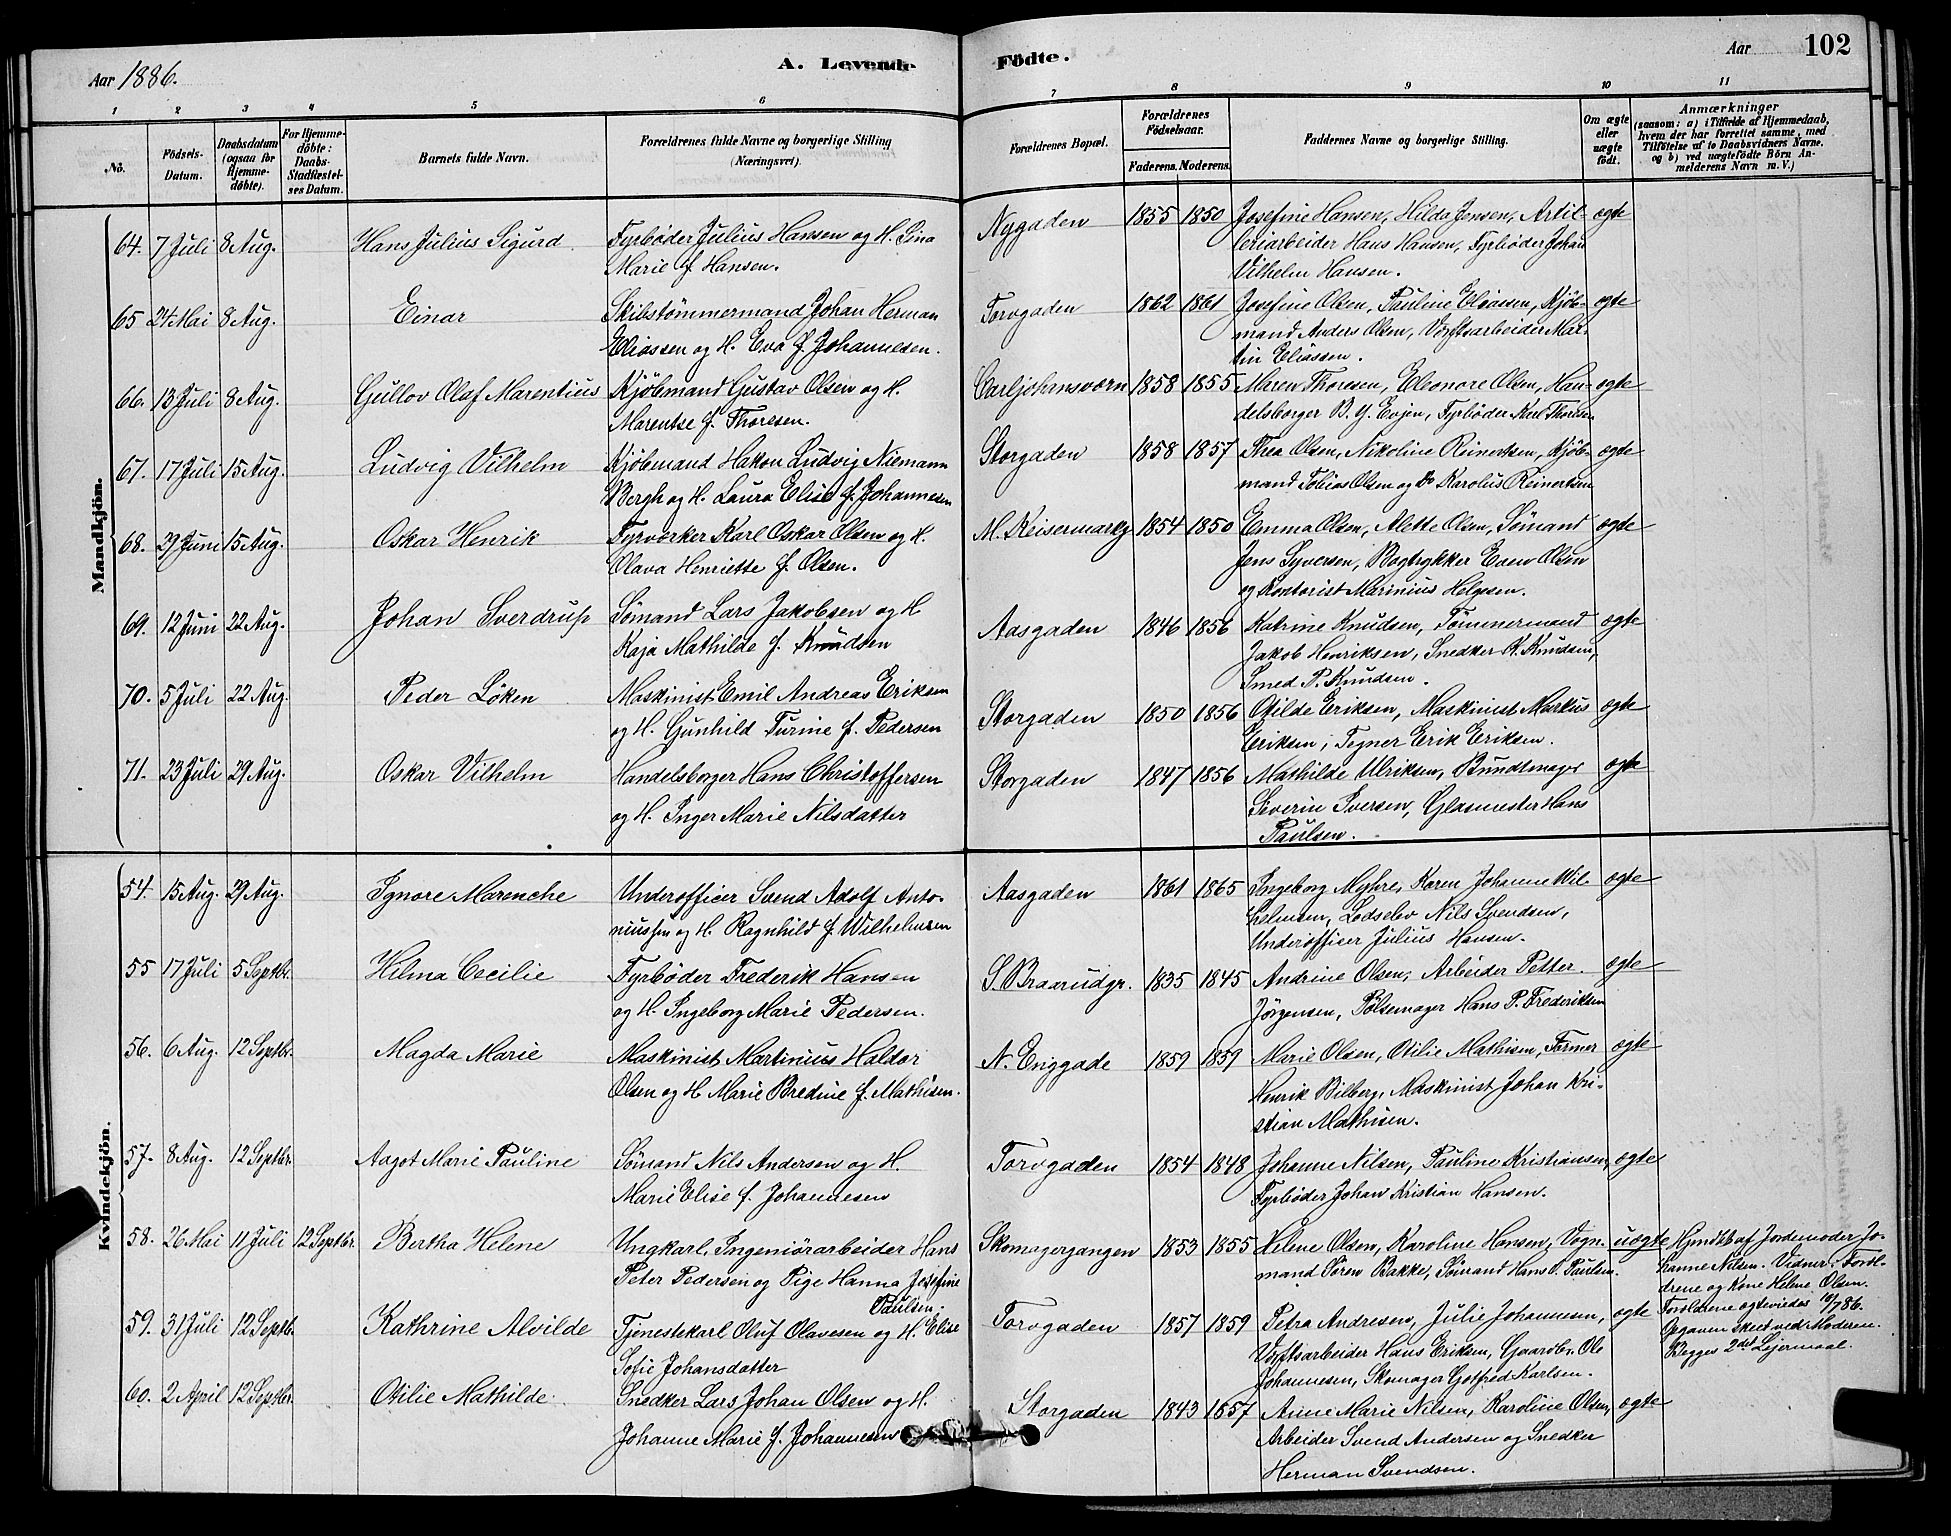 Aar 1886.
A. Levende
Födte.
Aar
102
1 2 3 4 5 6 7 8 9 10 11
No.
Födsels-Datum.
Daabsdatum (ogsaa for Hjemmedöbte).
For Hjemmedöbte: Daabs-Stadfæstelses Datum.
Barnets fulde Navn.
Forældrenes fulde Navne og borgerlige Stilling (Næringsvei).
Forældrenes Bopæl.
Forældrenes Födselsaar.
Faderens. Moderens.
Faddernes Navne og borgerlige Stilling.
Om ægte eller uægte födt.
Anmærkninger (saasom: a) i Tilfælde af Hjemmedaab, hvem der har forrettet samme, med Tilföielse af to Daabsvidners Navne, og b) ved uægtefödte Börn Anmelderens Navn m.V.)
Mandkjön.
64. 7 Juli 8 Aug. Hans Julius Sigurd Fyrbøder Julius Hansen og H. Sina
Marie f. Hansen. Nygaden 1855 1850 Josefine Hansen, Hilda Jensen, Artil-
leriarbeider Hans Hansen, Fyrbøder Johan
Vilhelm Hansen. ægte
65 24 Mai 8 Aug. Einar Skibstømmermand Johan Herman
Eliassen og H. Eva f. Johannesen. Torvgaden 1862 1861 Josefine Olsen, Pauline Eliassen, Kjøb-
mand Anders Olsen, Værftsarbeider Mar-
tin Eliassen. ægte
66. 13 Juli 8 Aug. Gullov Olaf Marentius Kjøbmand Gustav Olsen og H.
Marentse f. Thoresen. Carljohansværn 1858 1855 Maren Thoresen, Eleonore Olsen, Han-
delsborger B. Y. Evjen, Fyrbøder Karl Thoresen ægte
67. 17 Juli 15 Aug. Ludvig Vilhelm Kjøbmand Hakon Ludvig Niemann
Bergh og H. Laura Elise f. Johannesen Storgaden 1858 1857 Thea Olsen, Nikoline Reinertsen, Kjøb-
mand Tobias Olsen og Do Karolius Reinertsen ægte
68. 29 Juni 15 Aug. Oskar Henrik Fyrværker Karl Oskar Olsen og H.
Olava Henriette f. Olsen. M. Keisermarkg 1854 1850 Emma Olsen, Alette Olsen, Sømand
Jens Syversen, Bogtrykker Even Olsen
og Kontorist Marinius Helgesen. ægte
69. 12 Juni 22 Aug. Johan Sverdrup Sømand Lars Jakobsen og H.
Kaja Mathilde f. Knudsen Aasgaden 1846 1856 Katrine Knudsen, Tømmermand
Jakob Henriksen, Snedker K. Knudsen,
Smed P. Knudsen. ægte
70. 5 Juli 22 Aug. Peder Løken Maskinist Emil Andreas Eriksen
og H. Gunhild Turine f. Pedersen Storgaden 1850 1856 Otilde Eriksen, Maskinist Markus
Eriksen, Tegner Erik Eriksen. ægte
71. 23 Juli 29 Aug. Oskar Vilhelm Handelsborger Hans Christoffersen
og H. Inger Marie Nilsdatter Storgaden 1847 1856 Mathilde Ulriksen, Bundtmager
Severin Iversen, Glasmester Hans
Paulsen. ægte
Kvindekjön.
54. 15 Aug. 29 Aug. Ignore Marenche Underofficer Svend Adolf Anto-
niussen og H. Ragnhild f. Wilhelmsen Aasgaden 1861 1865 Ingeborg Myhre, Karen Johanne Wil-
helmsen, Lodselev Nils Svendsen,
Underofficer Julius Hansen. ægte
55 17 Juli 5 Septbr. Hilma Cecilie Fyrbøder Frederik Hansen
og H. Ingeborg Marie Pedersen. S. Braarudgr. 1835 1845 Andrine Olsen, Arbeider Petter
Jørgensen, Pølsemager Hans P. Frederiksen ægte
56. 6 Aug. 12 Septbr. Magda Marie Maskinist Martinius Haldor
Olsen og H. Marie Bredine f. Mathisen. N. Enggade 1859 1859 Marie Olsen, Otilie Mathisen, Former
Henrik Bilberg, Maskinist Johan Kri-
stian Mathisen. ægte
57. 8 Aug. 12 Septbr. Aagot Marie Pauline Sømand Nils Andersen og H.
Marie Elise f. Johannesen Torvgaden 1854 1848 Johanne Nilsen, Pauline Kristiansen,
Fyrbøder Johan Kristian Hansen. ægte
58. 26 Mai 11 Juli 12 Septbr. Bertha Helene Ungkarl, Ingeniørarbeider Hans
Peter Pedersen og Pige Hanna Josefine
Paulsen. Skomagergangen 1853 1855 Helene Olsen, Karoline Hansen, Vogn-
mand Søren Bakke, Sømand Hans P. Paulsen. uægte Hjmdbt. af Jordemoder Jo-
hanne Nilsen. Vidner: Foræl-
drene og Kone Helene Olsen.
Forældrene ægteviedes 10/7 86.
Opgaven skeet ved Moderen.
Begges 2det Lejermaal.
59. 31 Juli 12 Septb. Kathrine Alvilde Tjenestekarl Oluf Olavesen og H. Elise
Sofie Johansdatter Torvgaden 1857 1859 Petra Andresen, Julie Johannesen,
Værftsarbeider Hans Eriksen, Gaardbr. Ole
Johannesen, Skomager Gotfred Karlsen. ægte
60. 2 April 12 Septbr. Otilie Mathilde Snedker Lars Johan Olsen og H.
Johanne Marie f. Johannesen Storgaden 1843 1857 Anne Marie Nilsen, Karoline Olsen,
Arbeider Svend Andersen og Snedker
Herman Svendsen. ægte